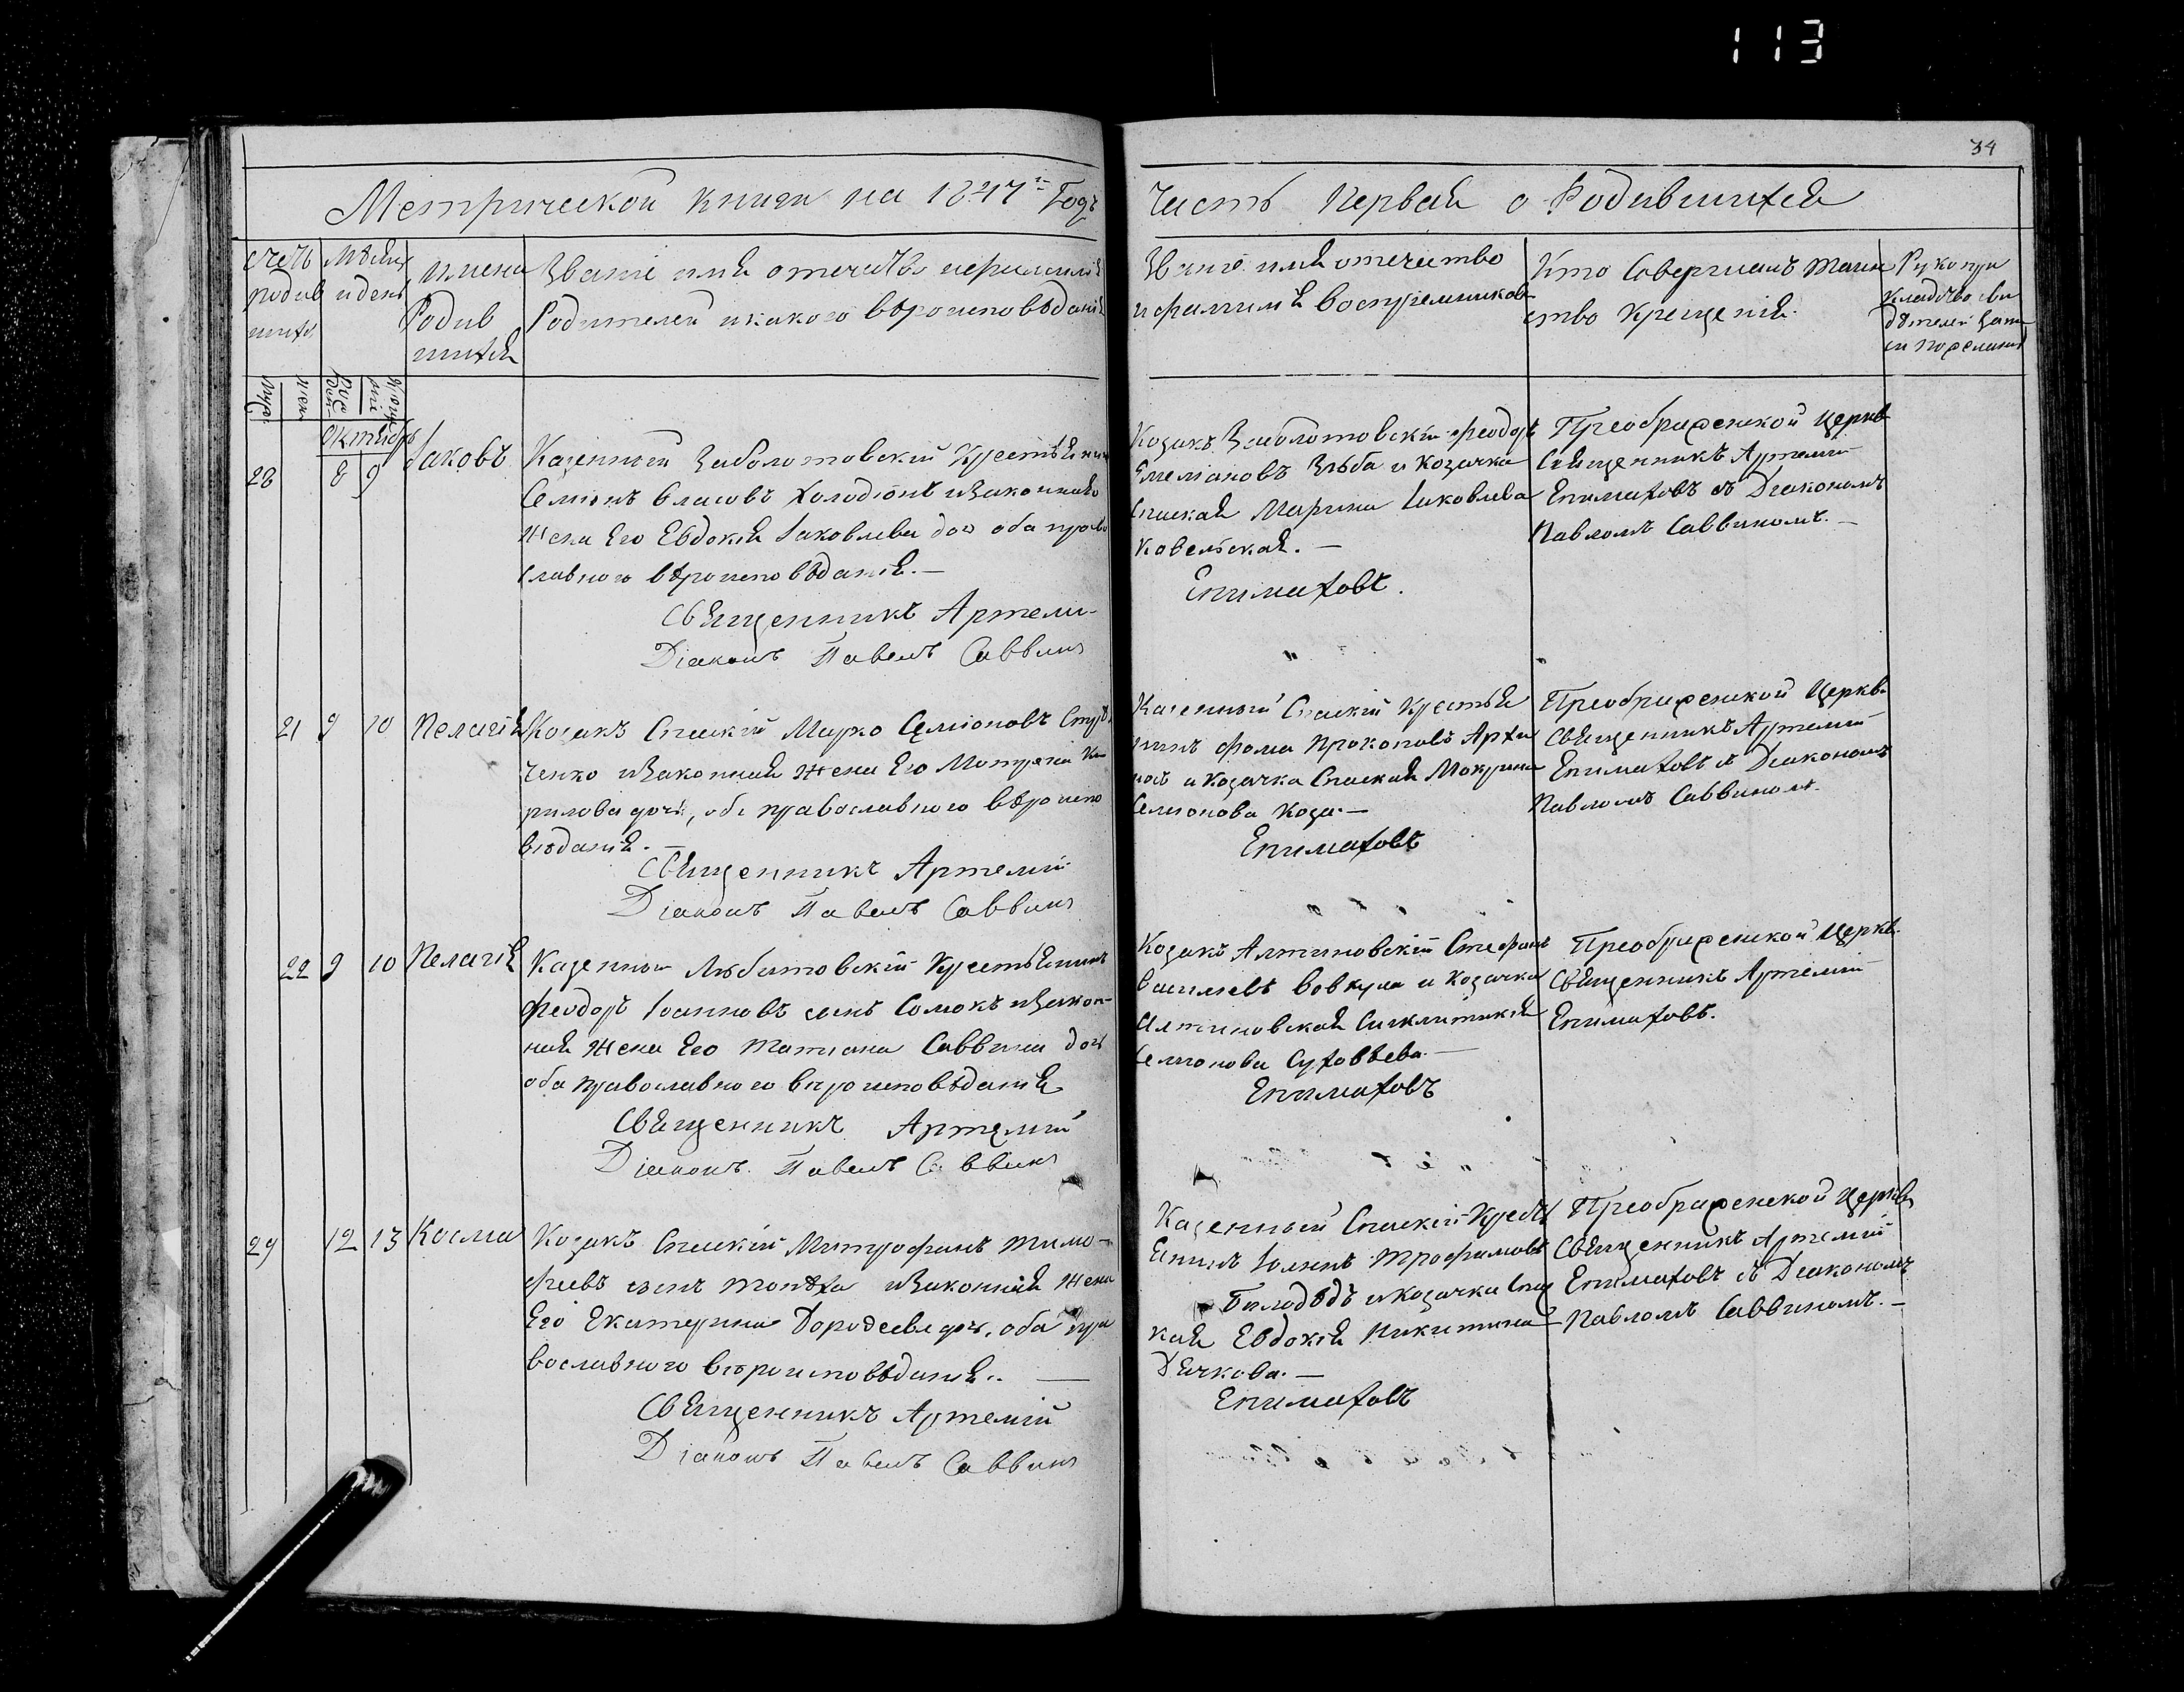 113
34
Метрической книги на 1847й Годъ
Часть Первая о Родившихся
счетъ родив шихся
Мѣсяцъ и день
имена Родив шихся
Званіе имя отечество и фамилія
Родителей и какого вѣроисповѣданія
Званіе имя отечество
и фамилія воспріемниковъ
Кто совершалъ таин
ство крещенія.
Рукопри
кладство сви
дѣтелей запи
си по желанію
муж
жен
Рож ден
Крещ ені
октябрь
28
8 9
Іаковъ
Казенный Заболотовскій крестьянинъ
Семіонъ Власовъ Холодіонъ и законная
жена Его Евдокія Іаковлева доч оба право
славного вѣроисповѣданія.—
Священникъ Артемій
Діаконъ Павелъ Саввинъ
Козакъ Заболотовскій Феодоръ
Емеліановъ Зльба и Козачка
Спаская Марина Іаковлева
Ковельская.—
Епимаховъ.
Преображенской церкви
Священникъ Артемій
Епимаховъ съ Діакономъ
Павломъ Саввиномъ.—
21 9 10
Пелагія
Козакъ Спаскій Марко Семіоновъ
ченко и законная жена Его Матрена Ки
рилова дочь, оба православного вѣроиспо
вѣданія.—
Священникъ Артемій
Діаконъ Павелъ Саввинъ
Казенный Спаскій крестья
нинъ Фома Прокоповъ
и козачка Спаская Мокрина
Семіонова Коза.—
Епимаховъ
Преображенской Церкви
Священникъ Артемій
Епимаховъ съ Діакономъ
Павломъ Саввиномъ.
22 9 10
Пелагія
Казенный Любитовскій крестьянинъ
Феодоръ Іоанновъ сынъ Сомокъ и закон-
ная жена Его Татіана Саввина дочь
оба православного вѣроисповѣданія
Священникъ Артемій
Діаконъ Павелъ Саввинъ
Козакъ Алтиновскій Стефанъ
Васильевъ Вовкула и козачка
Алтиновская Сигклитикія
Семіонова Суховѣева.—
Епимаховъ
Преображенской Церкви
Священникъ Артемій
Епимаховъ.
29
12 13
Косма
Козакъ Спаскій Митрофанъ Тимо-
феевъ сынъ Топѣха и законная жена
Его Екатерина Дорофеева доч. оба пра
вославного вѣроисповѣданія.. —
Священникъ Артемій
Діаконъ Павелъ Саввинъ
Казенный Спаскій Кресть
янинъ Іоаннъ Трофимовъ
Билодѣдъ и козачка Спас
кая Евдокія Никитина
Дячкова.—
Епимаховъ
Преображенской Церкви
Священникъ Артемій
Епимаховъ съ Діакономъ
Павломъ Саввиномъ.—